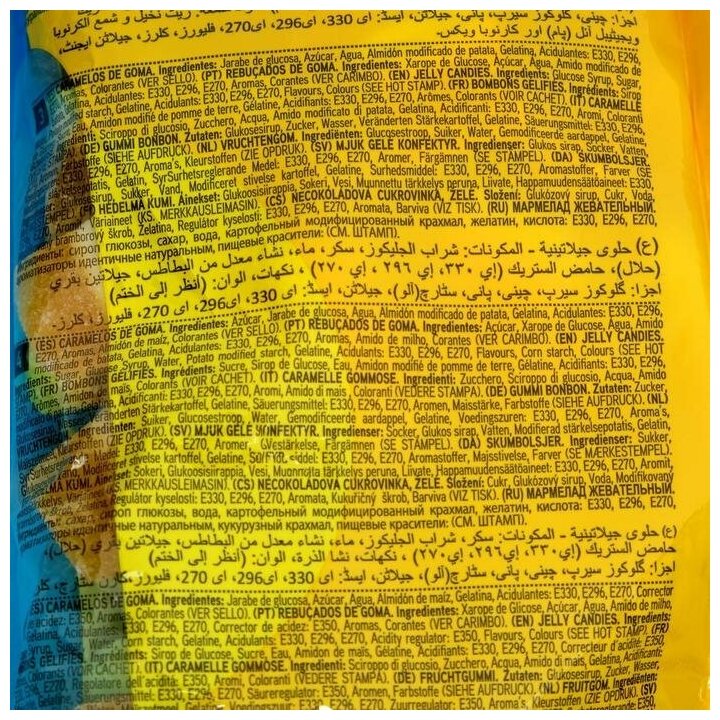 اجزا: چینی، گلوکوز سیرپ، پانی، جیلاٹن، ایسڈ: ای 330، ای296، ای270، فلیورز، کلرز، جیلاٹن ایجنٹ،
ویجیٹیبل آئل (پام) اور کارنوبا ویکس.
CARAMELOS DE GOMA. Ingredientes: Jarabe de glucosa, Azúcar, Agua, Almidón modificado de patata, Gelatina, Acidulantes: E330, E296,
Aromas, Colorantes (VER SELLO). (PT) REBUÇADOS DE GOMA. Ingredientes: Xarope de Glucose, Açúcar, Agua, Amido modificado de
Gelatina, Acidulantes: E330, E296, E270, Aromas, Corantes (VER CARIMBO). (EN) JELLY CANDIES. Ingredients: Glucose Syrup, Sugar,
starch, Gelatine, Acidulants: E330, E296, E270, Flavours, Colours (SEE HOT STAMP). (FR) BOMBONS GÉLIFIÉS. Ingrédients: Sirop
Eau, Amidon modifié de pomme de terre, Gélatine, Acidifiants: E330, E296, E270, Arômes, Colorants (VOIR CACHET). (IT) CARAMELLE
Ingredienti: Sciroppo di glucosio, Zucchero, Acqua, Amido modificato di patata, Gelatina, Acidificanti: E330, E296, E270, Aromi, Coloranti
(DE) GUMMI BONBON. Zutaten: Glukosesirup, Zucker, Wasser, Veränderten Stärkekartoffel, Gelatine, Säuerungsmittel: E330, E296,
Farbstoffe (SIEHE AUFDRUCK). (NL) VRUCHTENGOM. Ingrediënten: Glucosestroop, Suiker, Water, Gemodificeerde aardappel, Gelatine,
E330, E296, E270, Aroma's, Kleurstoffen (ZIE OPDRUK). (SV) MJUK GELÉ KONFEKTYR. Ingredienser: Glukos sirap, Socker, Vatten,
stärkelsepotatis, Gelatin, Syr/Surhetsreglerande Medel: E330, E296, E270, Aromer, Färgämnen (SE STAMPEL). (DA) SKUMBOLSJER.
Glukosesirup, Sukker, Vand, Modificeret stivelse kartoffel, Gelatine, Surhedsmiddel: E330, E296, E270, Aromastoffer, Farver (SE
STEMPEL). (FI) HEDELMÄ KUMI. Ainekset: Glukoosisiirappia, Sokeri, Vesi, Muunnettu tärkkelys peruna, Liivate, Happamuudensäätöaineet: E330,
Väriaineet (KS. MERKKAUSLEIMASIN). (CS) NEČOKOLÁDOVÁ CUKROVINKA, ŽELÉ. Složení: Glukózový sirup, Cukr, Voda,
bramborový škrob, Želatina, Regulátor kyselosti: E330, E296, E270, Aromata, Barviva (VIZ TISK). (RU) МАРМЕЛАД ЖЕВАТЕЛЬНЫЙ.
Ингредиенты: сироп глюкозы, сахар, вода, картофельный модифицированный крахмал, желатин, кислота: E330, E296, E270,
ароматизаторы идентичные натуральным, пищевые красители: (СМ. ШТАМП).
(ع) حلوى جيلاتينية - المكونات: شراب الجليكوز، سكر، ماء، نشاء معدل من البطاطس، جيلاتين بقري
(حلال)، حامض الستريك (إي ٣٣٠، إي ٢٩٦ ، إي ٢٧٠) ، نكهات، الوان: (أنظر إلى الختم)
اجزا: گلوکوز سیرپ، چینی، پانی، سٹارچ(آلو)، جیلاٹن، ایسڈ: ای 330، ای296، ای 270، فلیورز، کلرز.
(ES) CARAMELOS DE GOMA. Ingredientes: Azúcar, Jarabe de glucosa, Agua, Almidón modificado de patata, Gelatina, Acidulantes: E330, E296,
E270, Aromas, Almidón de maíz, Colorantes (VER SELLO). (PT) REBUÇADOS DE GOMA. Ingredientes: Açúcar, Xarope de Glucose, Agua, Amido
modificado de batata, Gelatina, Acidulantes: E330, E296, E270, Aromas, Amido de milho, Corantes (VER CARIMBO). (EN) JELLY CANDIES.
Ingredients: Sugar, Glucose Syrup, Water, Potato modified starch, Gelatine, Acidulants: E330, E296, E270, Flavours, Corn starch, Colours (SEE HOT
STAMP). (FR) BOMBONS GÉLIFIÉS. Ingrédients: Sucre, Sirop de Glucose, Eau, Amidon modifié de pomme de terre, Gélatine, Acidifiants: E330, E296,
E270, Arômes, Amidon de maïs, Colorants (VOIR CACHET). (IT) CARAMELLE GOMMOSE. Ingredienti: Zucchero, Sciroppo di glucosio, Acqua, Amido
Gelatina, Acidificanti: E330, E296, E270, Aromi, Amido di mais, Coloranti (VEDERE STAMPA). (DE) GUMMI BONBON. Zutaten: Zucker,
Veränderten Stärkekartoffel, Gelatine, Säuerungsmittel: E330, E296, E270, Aromen, Maisstärke, Farbstoffe (SIEHE AUFDRUCK). (NL)
VRUCHTENGOM. Suiker, Glucosestroop, Water, Gemodificeerde aardappel, Gelatine, Voedingszuren: E330, E296, E270, Aroma's,
Kleurstoffen (ZIE OPDRUK). (SV) MJUK GELÉ KONFEKTYR. Ingredienser: Socker, Glukos sirap, Vatten, Modifierad stärkelsepotatis, Gelatin,
Syr/Surhetsreglerande Medel: E330, E296, E270, Aromer, Majsstärkelse, Färgämnen (SE STAMPEL). (DA) SKUMBOLSJER. Ingredienser: Sukker,
Modificeret stivelse kartoffel, Gelatine, Surhedsmiddel: E330, E296, E270, Aromastoffer, Majsstivelse, Farver (SE MÆRKESTEMPEL).
HEDELMÄ KUMI. Ainekset: Sokeri, Glukoosisiirappia, Vesi, Muunnettu tärkkelys peruna, Liivate, Happamuudensäätöaineet: E330, E296, E270, Aromit,
Väriaineet (KS. MERKKAUSLEIMASIN). (CS) NEČOKOLÁDOVÁ CUKROVINKA, ŽELÉ. Složení: Cukr, Glukózový sirup, Voda, Modifikovaný
Regulátor kyselosti: E330, E296, E270, Aromata, Kukuřičný škrob, Barviva (VIZ TISK). (RU) МАРМЕЛАД ЖЕВАТЕЛЬНЫЙ.
сахар, сироп глюкозы, вода, картофельный модифицированный крахмал, желатин, кислота: E330, E296, E270,
идентичные натуральным, кукурузный крахмал, пищевые красители: (СМ. ШТАМП).
(ع) حلوى جيلاتينية - المكونات: سكر، شراب الجليكوز، ماء، نشاء معدل من البطاطس، جيلاتين بقري (حلال)،
حامض الستريك (إي ٣٣٠، إي٢٩٦، إي ٢٧٠) ، نكهات، نشا الذرة، الوان: (أنظر إلى الختم)
اجزا: گلوکوز سیرپ، چینی، پانی، سٹارچ(آلو)، جیلاٹن، ایسڈ: ای 330، ای296، ای 270، فلیورز، کارن سٹارچ، کلرز
(ES) CARAMELOS DE GOMA. Ingredientes: Jarabe de glucosa, Azúcar, Agua, Almidón de maíz, Gelatina, Acidulantes: E330, E296, E270, Corrector
de acidez: E350, Aromas, Colorantes (VER SELLO). (PT) REBUÇADOS DE GOMA. Ingredientes: Xarope de Glicose, Açúcar, Agua, Amido de milho,
Gelatina, Acidulantes: E330, E296, E270, Corrector de acidez: E350, Aromas, Corantes (VER CARIMBO). (EN) JELLY CANDIES. Ingredients:
Syrup, Sugar, Water, Corn starch, Gelatine, Acidulants: E330, E296, E270, Acidity regulator: E350, Flavours, Colours (SEE HOT STAMP). (FR)
BOMBONS GÉLIFIÉS. Ingrédients: Sirop de Glucose, Sucre, Eau, Amidon de maïs, Gélatine, Acidifiants: E330, E296, E270, Correcteur d'acidité: E350,
Colorants (VOIR CACHET). (IT) CARAMELLE GOMMOSE. Ingredienti: Sciroppo di glucosio, Zucchero, Acqua, Amido di mais, Gelatina, Acidificanti:
E296, E270, Regolatore dell'acidità: E350, Aromi, Coloranti (VEDERE STAMPA). (DE) FRUCHTGUMMI. Zutaten: Glukosesirup, Zucker, Wasser,
Säuerungsmittel: E330, E296, E270, Säureregulator: E350, Aromen, Farbstoffe (SIEHE AUFDRUCK). (NL) FRUITGOM. Ingrediënten:
Gelatine, Voedingszuur: E330, E296, E270, Zuurregulator: E350, Aroma's, Kleurstoffen (ZIE OPDRUK). (SV)